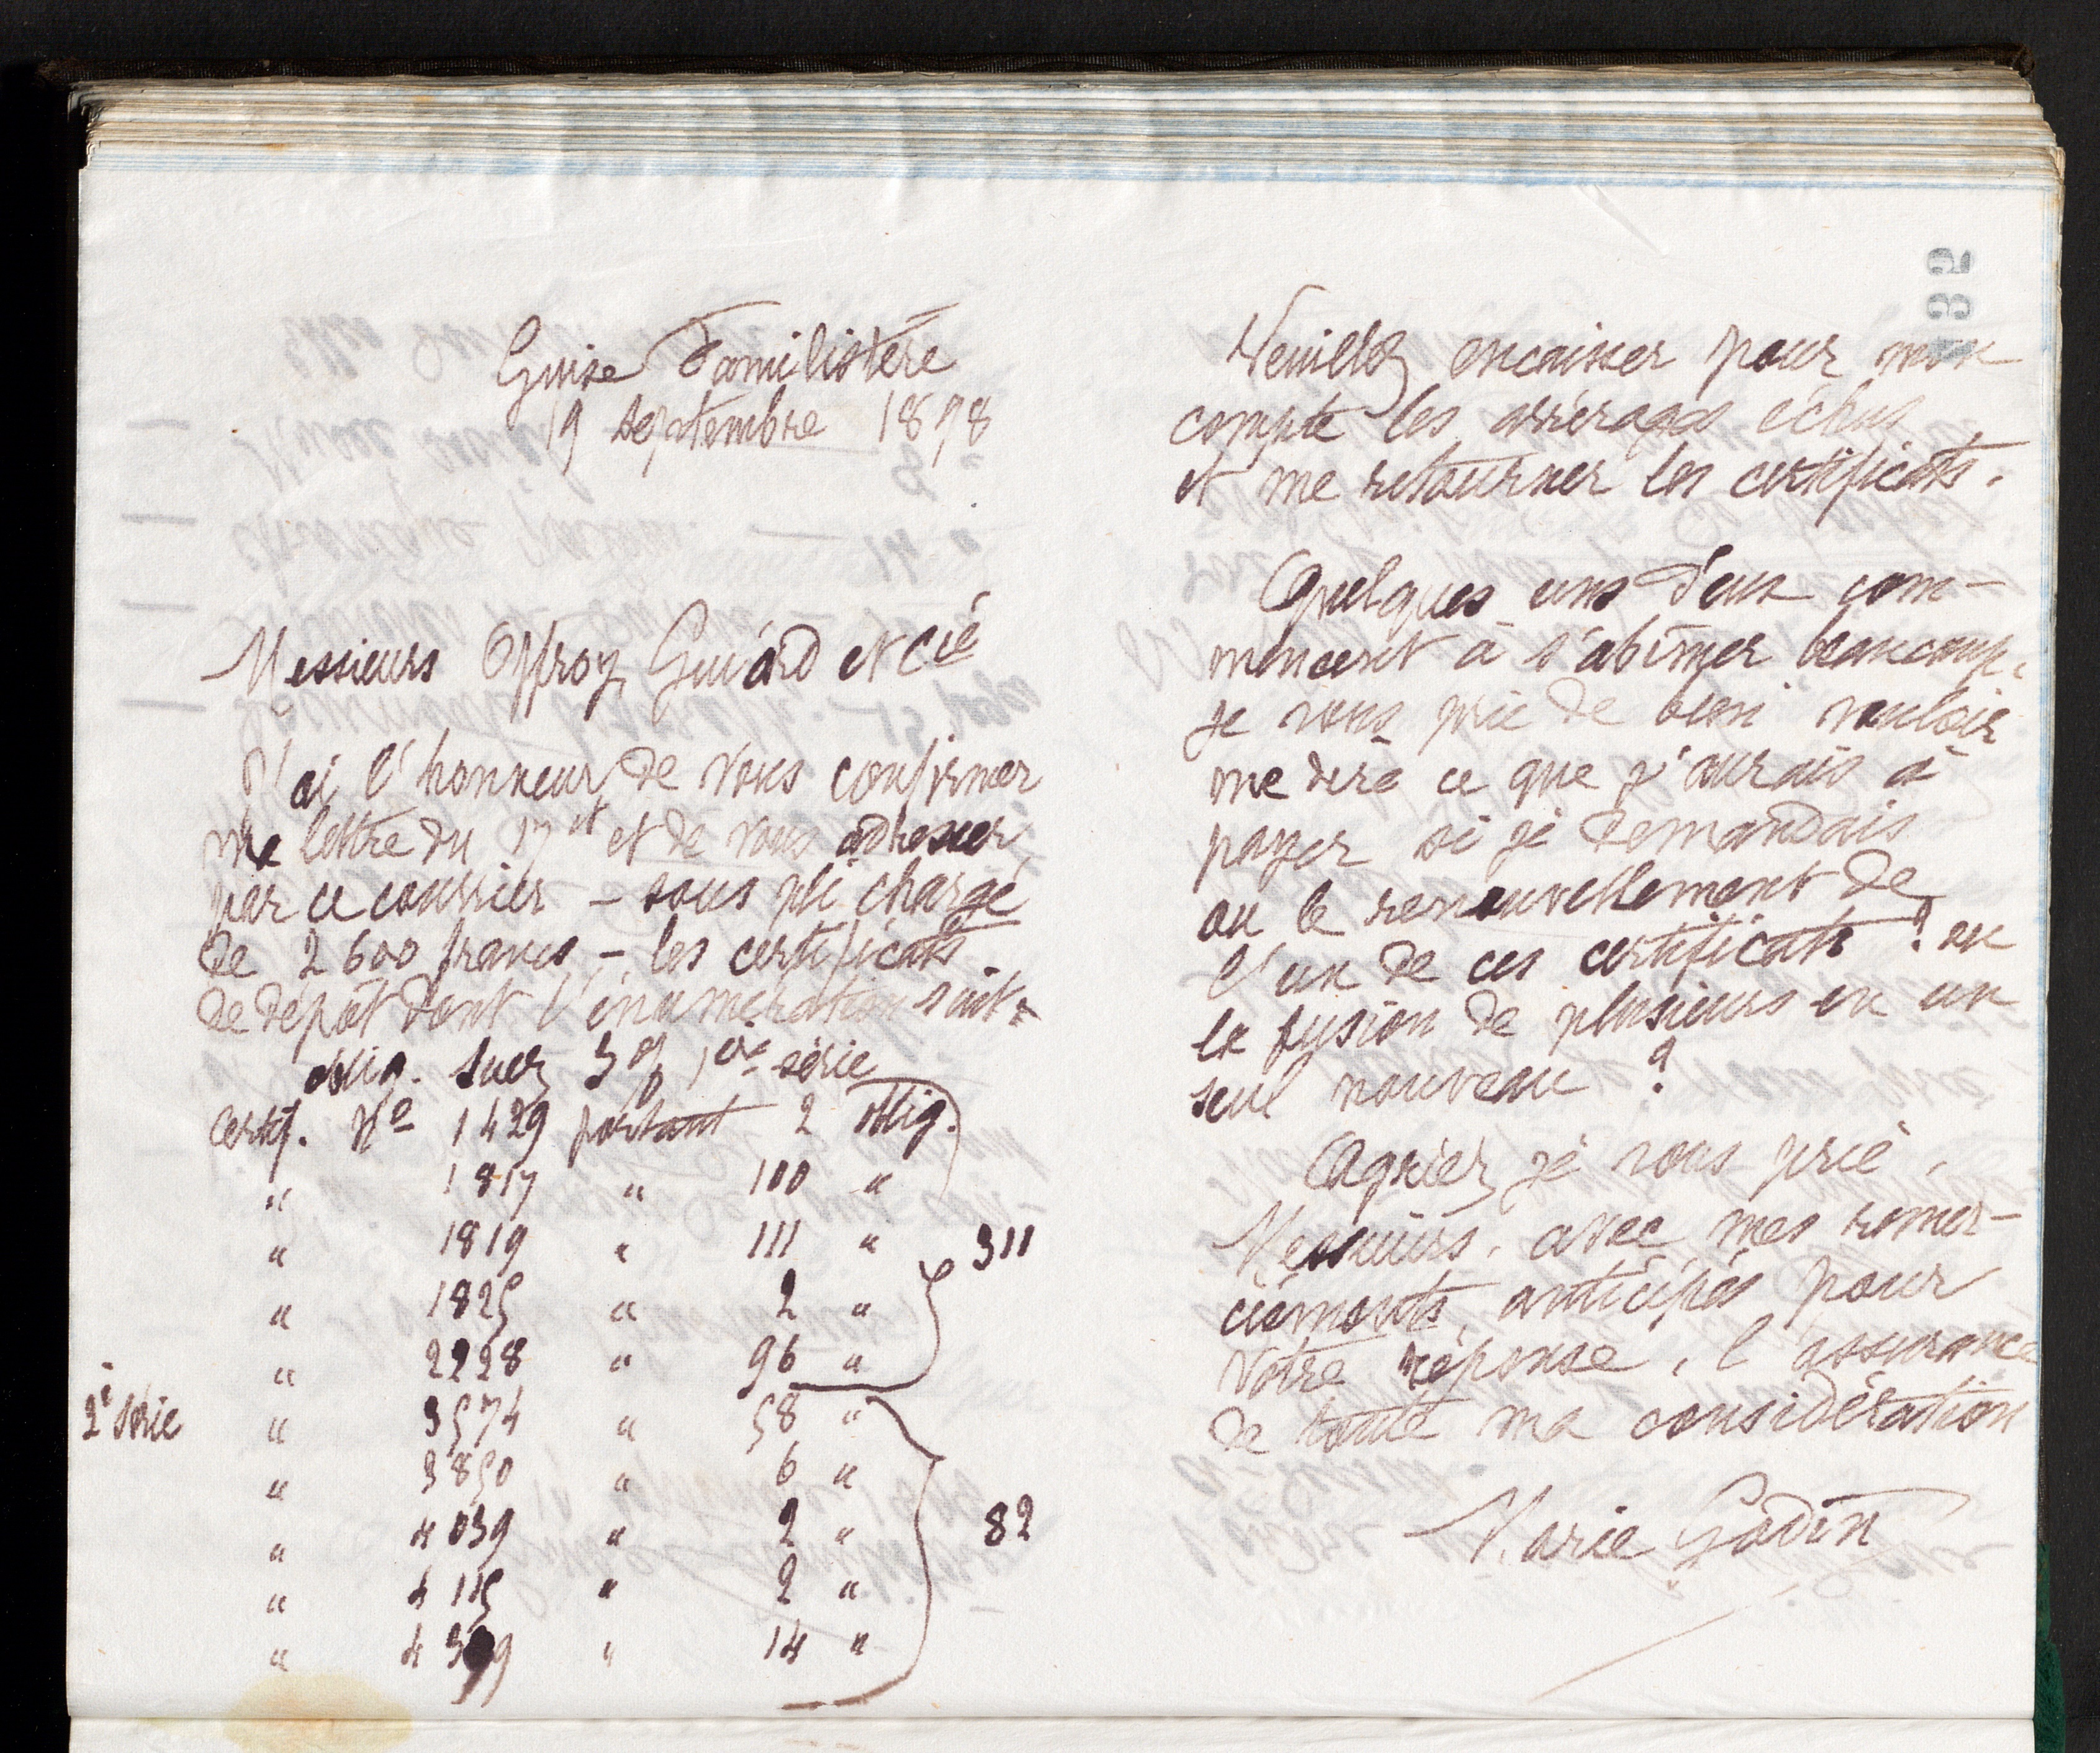 Guise Familistère
19 septembre 1898
Messieurs Offroy, Guiard et Cie
J'ai l'honneur de vous confirmer
ma lettre du 17 ct et de vous adresser,
par ce courrier – sous pli chargé
de 2600 francs – les certificats
de dépôt dont l'énumération suit :
oblig. Suez 3 % 1ère série
Certif. No 1429 portant 2 oblig.
" 1817 " 100 "
" 1819 " 111 " 311
" 1825 " 2 "
" 2228 " 96 "
2e série " 3574 " 58 "
" 3850 " 6 "
" 4039 " 2 " 82
" 4115 " 2 "
" 4399 " 14 "
335
Veuillez encaisser pour mon
compte les arrérages échus
et me retourner les certificats.
Quelques uns d'eux com-
mencent à s'abîmer beaucoup,
je vous prie de bien vouloir
me dire ce que j'aurais à
payer si je demandais
ou le renouvellement de
l'un de ces certificats ? ou
la fusion de plusieurs en un
seul nouveau ?
Agréez, je vous prie,
Messieurs, avec mes remer-
ciements anticipés pour
votre réponse, l'assurance
de toute ma considération
Marie Godin